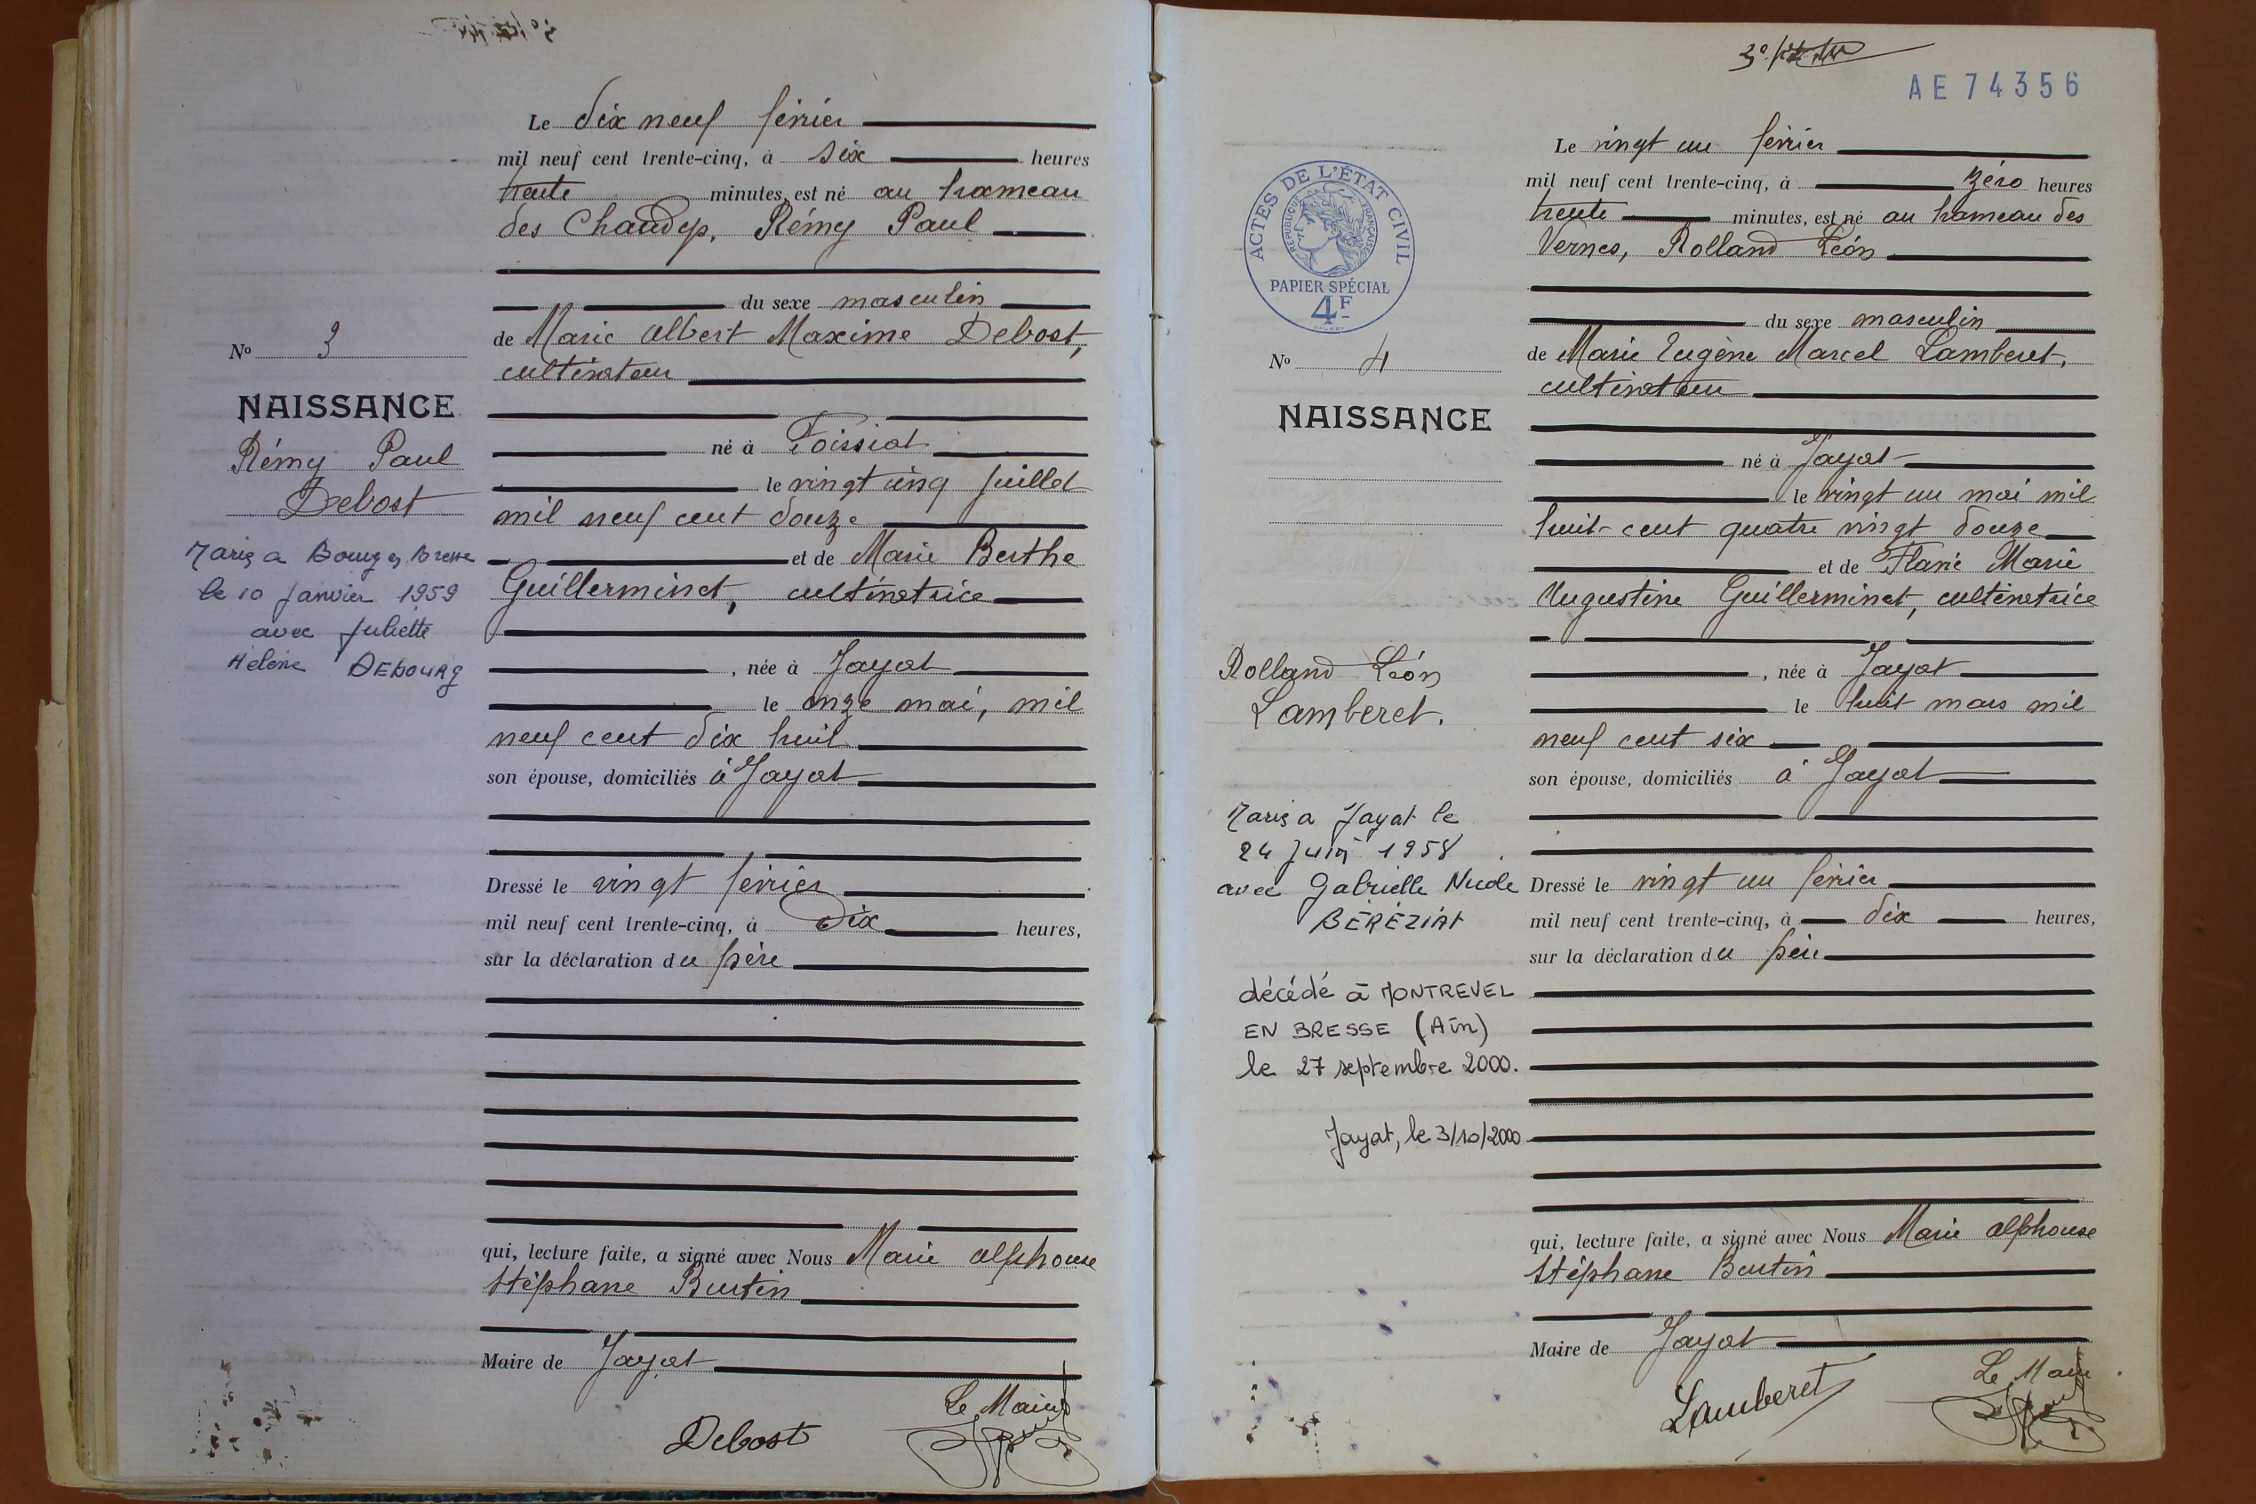 Le dix neuf février
mil neuf cent trente-cinq, à six heures
trente minutes, est né au hameau
des Chaudys, Rémy Paul
du sexe masculin
de Marie Albert Maxime Debost,
cultivateur
né à Foissiat
le vingt cinq juillet
mil neuf cent douze
et de Marie Berthe
Guillerminet, cultivatrice
, née à Jayat
le onze mai, mil
neuf cent dix huit
son épouse, domiciliés à Jayat
Dressé le vingt février
mil neuf cent trente-cinq, à dix heures,
sur la déclaration du père
qui, lecture faite, a signé avec Nous Marie Alphonse
Stéphane Burtin
Maire de Jayat
Le Maire
Debost
No 3
NAISSANCE
Rémy Paul
Debost
Marié à Bourg en Bresse
le 10 Janvier 1959
avec Juliette
Hélène DEBOURG
AE 74356
ACTES DE L'ÉTAT CIVIL
RÉPUBLIQUE FRANÇAISE
PAPIER SPÉCIAL
4F
No 4
NAISSANCE
Rolland Léon
Lamberet.
Marié à Jayat le
24 Juin 1958
avec Gabrielle Nicole
BÉRÉZIAT
décédé à MONTREVEL
EN BRESSE (Ain)
le 27 septembre 2000.
Jayat, le 3/10/2000
Le vingt un février
mil neuf cent trente-cinq, à zéro heures
trente minutes, est né au hameau des
Vernes, Rolland Léon
du sexe masculin
de Marie Eugène Marcel Lamberet,
cultivateur
né à Jayat
le vingt un mai mil
huit-cent quatre vingt douze
et de Flavie Marie
Augustine Guillerminet, cultivatrice
, née à Jayat
le huit mars mil
neuf cent six
son épouse, domiciliés à Jayat
Dressé le vingt un février
mil neuf cent trente-cinq, à dix heures,
sur la déclaration du père
qui, lecture faite, a signé avec Nous Marie Alphonse
Stéphane Burtin
Maire de Jayat
Le Maire
Lamberet